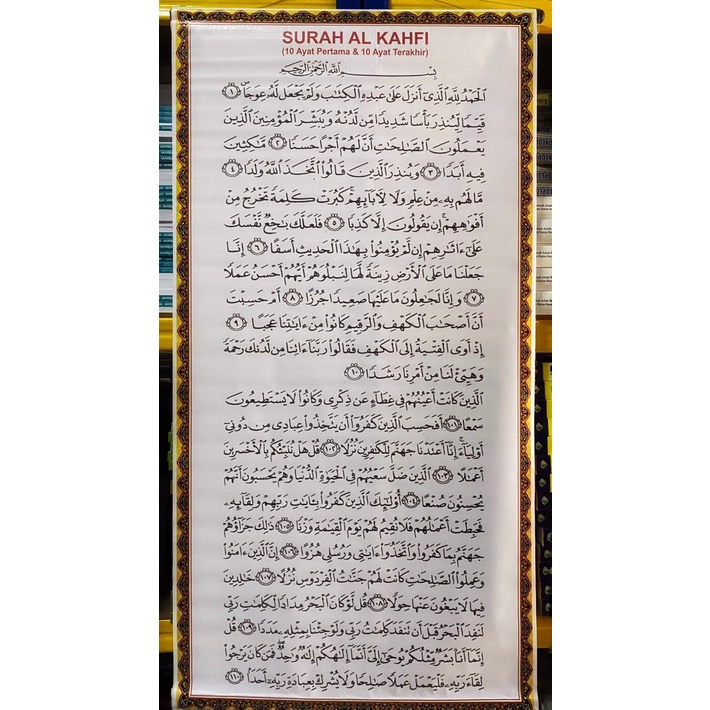 SURAH AL KAHFI
(10 Ayat Pertama & 10 Ayat Terakhir)
بِسْمِ اللَّهِ الرَّحْمَٰنِ الرَّحِيمِ
الْحَمْدُ لِلَّهِ الَّذِي أَنْزَلَ عَلَىٰ عَبْدِهِ الْكِتَابَ وَلَمْ يَجْعَلْ لَهُ عِوَجًا ۜ ١
قَيِّمًا لِيُنْذِرَ بَأْسًا شَدِيدًا مِنْ لَدُنْهُ وَيُبَشِّرَ الْمُؤْمِنِينَ الَّذِينَ
يَعْمَلُونَ الصَّالِحَاتِ أَنَّ لَهُمْ أَجْرًا حَسَنًا ٢ مَاكِثِينَ
فِيهِ أَبَدًا ٣ وَيُنْذِرَ الَّذِينَ قَالُوا اتَّخَذَ اللَّهُ وَلَدًا ٤
مَا لَهُمْ بِهِ مِنْ عِلْمٍ وَلَا لِآبَائِهِمْ ۚ كَبُرَتْ كَلِمَةً تَخْرُجُ مِنْ
أَفْوَاهِهِمْ ۚ إِنْ يَقُولُونَ إِلَّا كَذِبًا ٥ فَلَعَلَّكَ بَاخِعٌ نَفْسَكَ
عَلَىٰ آثَارِهِمْ إِنْ لَمْ يُؤْمِنُوا بِهَٰذَا الْحَدِيثِ أَسَفًا ٦ إِنَّا
جَعَلْنَا مَا عَلَى الْأَرْضِ زِينَةً لَهَا لِنَبْلُوَهُمْ أَيُّهُمْ أَحْسَنُ عَمَلًا
٧ وَإِنَّا لَجَاعِلُونَ مَا عَلَيْهَا صَعِيدًا جُرُزًا ٨ أَمْ حَسِبْتَ
أَنَّ أَصْحَابَ الْكَهْفِ وَالرَّقِيمِ كَانُوا مِنْ آيَاتِنَا عَجَبًا ٩
إِذْ أَوَى الْفِتْيَةُ إِلَى الْكَهْفِ فَقَالُوا رَبَّنَا آتِنَا مِنْ لَدُنْكَ رَحْمَةً
وَهَيِّئْ لَنَا مِنْ أَمْرِنَا رَشَدًا ١٠
الَّذِينَ كَانَتْ أَعْيُنُهُمْ فِي غِطَاءٍ عَنْ ذِكْرِي وَكَانُوا لَا يَسْتَطِيعُونَ
سَمْعًا ١٠١ أَفَحَسِبَ الَّذِينَ كَفَرُوا أَنْ يَتَّخِذُوا عِبَادِي مِنْ دُونِي
أَوْلِيَاءَ ۚ إِنَّا أَعْتَدْنَا جَهَنَّمَ لِلْكَافِرِينَ نُزُلًا ١٠٢ قُلْ هَلْ نُنَبِّئُكُمْ بِالْأَخْسَرِينَ
أَعْمَالًا ١٠٣ الَّذِينَ ضَلَّ سَعْيُهُمْ فِي الْحَيَاةِ الدُّنْيَا وَهُمْ يَحْسَبُونَ أَنَّهُمْ
يُحْسِنُونَ صُنْعًا ١٠٤ أُولَٰئِكَ الَّذِينَ كَفَرُوا بِآيَاتِ رَبِّهِمْ وَلِقَائِهِ
فَحَبِطَتْ أَعْمَالُهُمْ فَلَا نُقِيمُ لَهُمْ يَوْمَ الْقِيَامَةِ وَزْنًا ١٠٥ ذَٰلِكَ جَزَاؤُهُمْ
جَهَنَّمُ بِمَا كَفَرُوا وَاتَّخَذُوا آيَاتِي وَرُسُلِي هُزُوًا ١٠٦ إِنَّ الَّذِينَ آمَنُوا
وَعَمِلُوا الصَّالِحَاتِ كَانَتْ لَهُمْ جَنَّاتُ الْفِرْدَوْسِ نُزُلًا ١٠٧ خَالِدِينَ
فِيهَا لَا يَبْغُونَ عَنْهَا حِوَلًا ١٠٨ قُلْ لَوْ كَانَ الْبَحْرُ مِدَادًا لِكَلِمَاتِ رَبِّي
لَنَفِدَ الْبَحْرُ قَبْلَ أَنْ تَنْفَدَ كَلِمَاتُ رَبِّي وَلَوْ جِئْنَا بِمِثْلِهِ مَدَدًا ١٠٩ قُلْ
إِنَّمَا أَنَا بَشَرٌ مِثْلُكُمْ يُوحَىٰ إِلَيَّ أَنَّمَا إِلَٰهُكُمْ إِلَٰهٌ وَاحِدٌ ۖ فَمَنْ كَانَ يَرْجُوا
لِقَاءَ رَبِّهِ فَلْيَعْمَلْ عَمَلًا صَالِحًا وَلَا يُشْرِكْ بِعِبَادَةِ رَبِّهِ أَحَدًا ١١٠